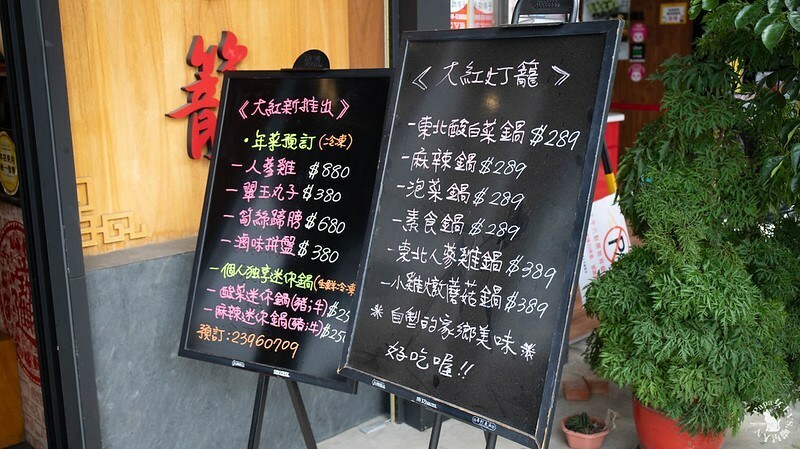 籠
《大紅新推出》
・年菜預訂(冷凍)
一人蔘雞 $880
一翠玉丸子 $380
一筍絲蹄膀 $680
一滷味拼盤 $380
・個人独享迷你鍋(生鮮.冷凍
一酸菜迷你鍋(豬;牛)$25
一麻辣迷你鍋(豬;牛)$25
預訂:23960709
《大紅灯籠》
一東北酸白菜鍋 $289
一麻辣鍋 $289
一泡菜鍋 $289
一素食鍋 $289
一東北人蔘雞鍋 $389
一小雞燉蘑菇鍋 $389
※自製的家鄉美味※
好吃喔!!